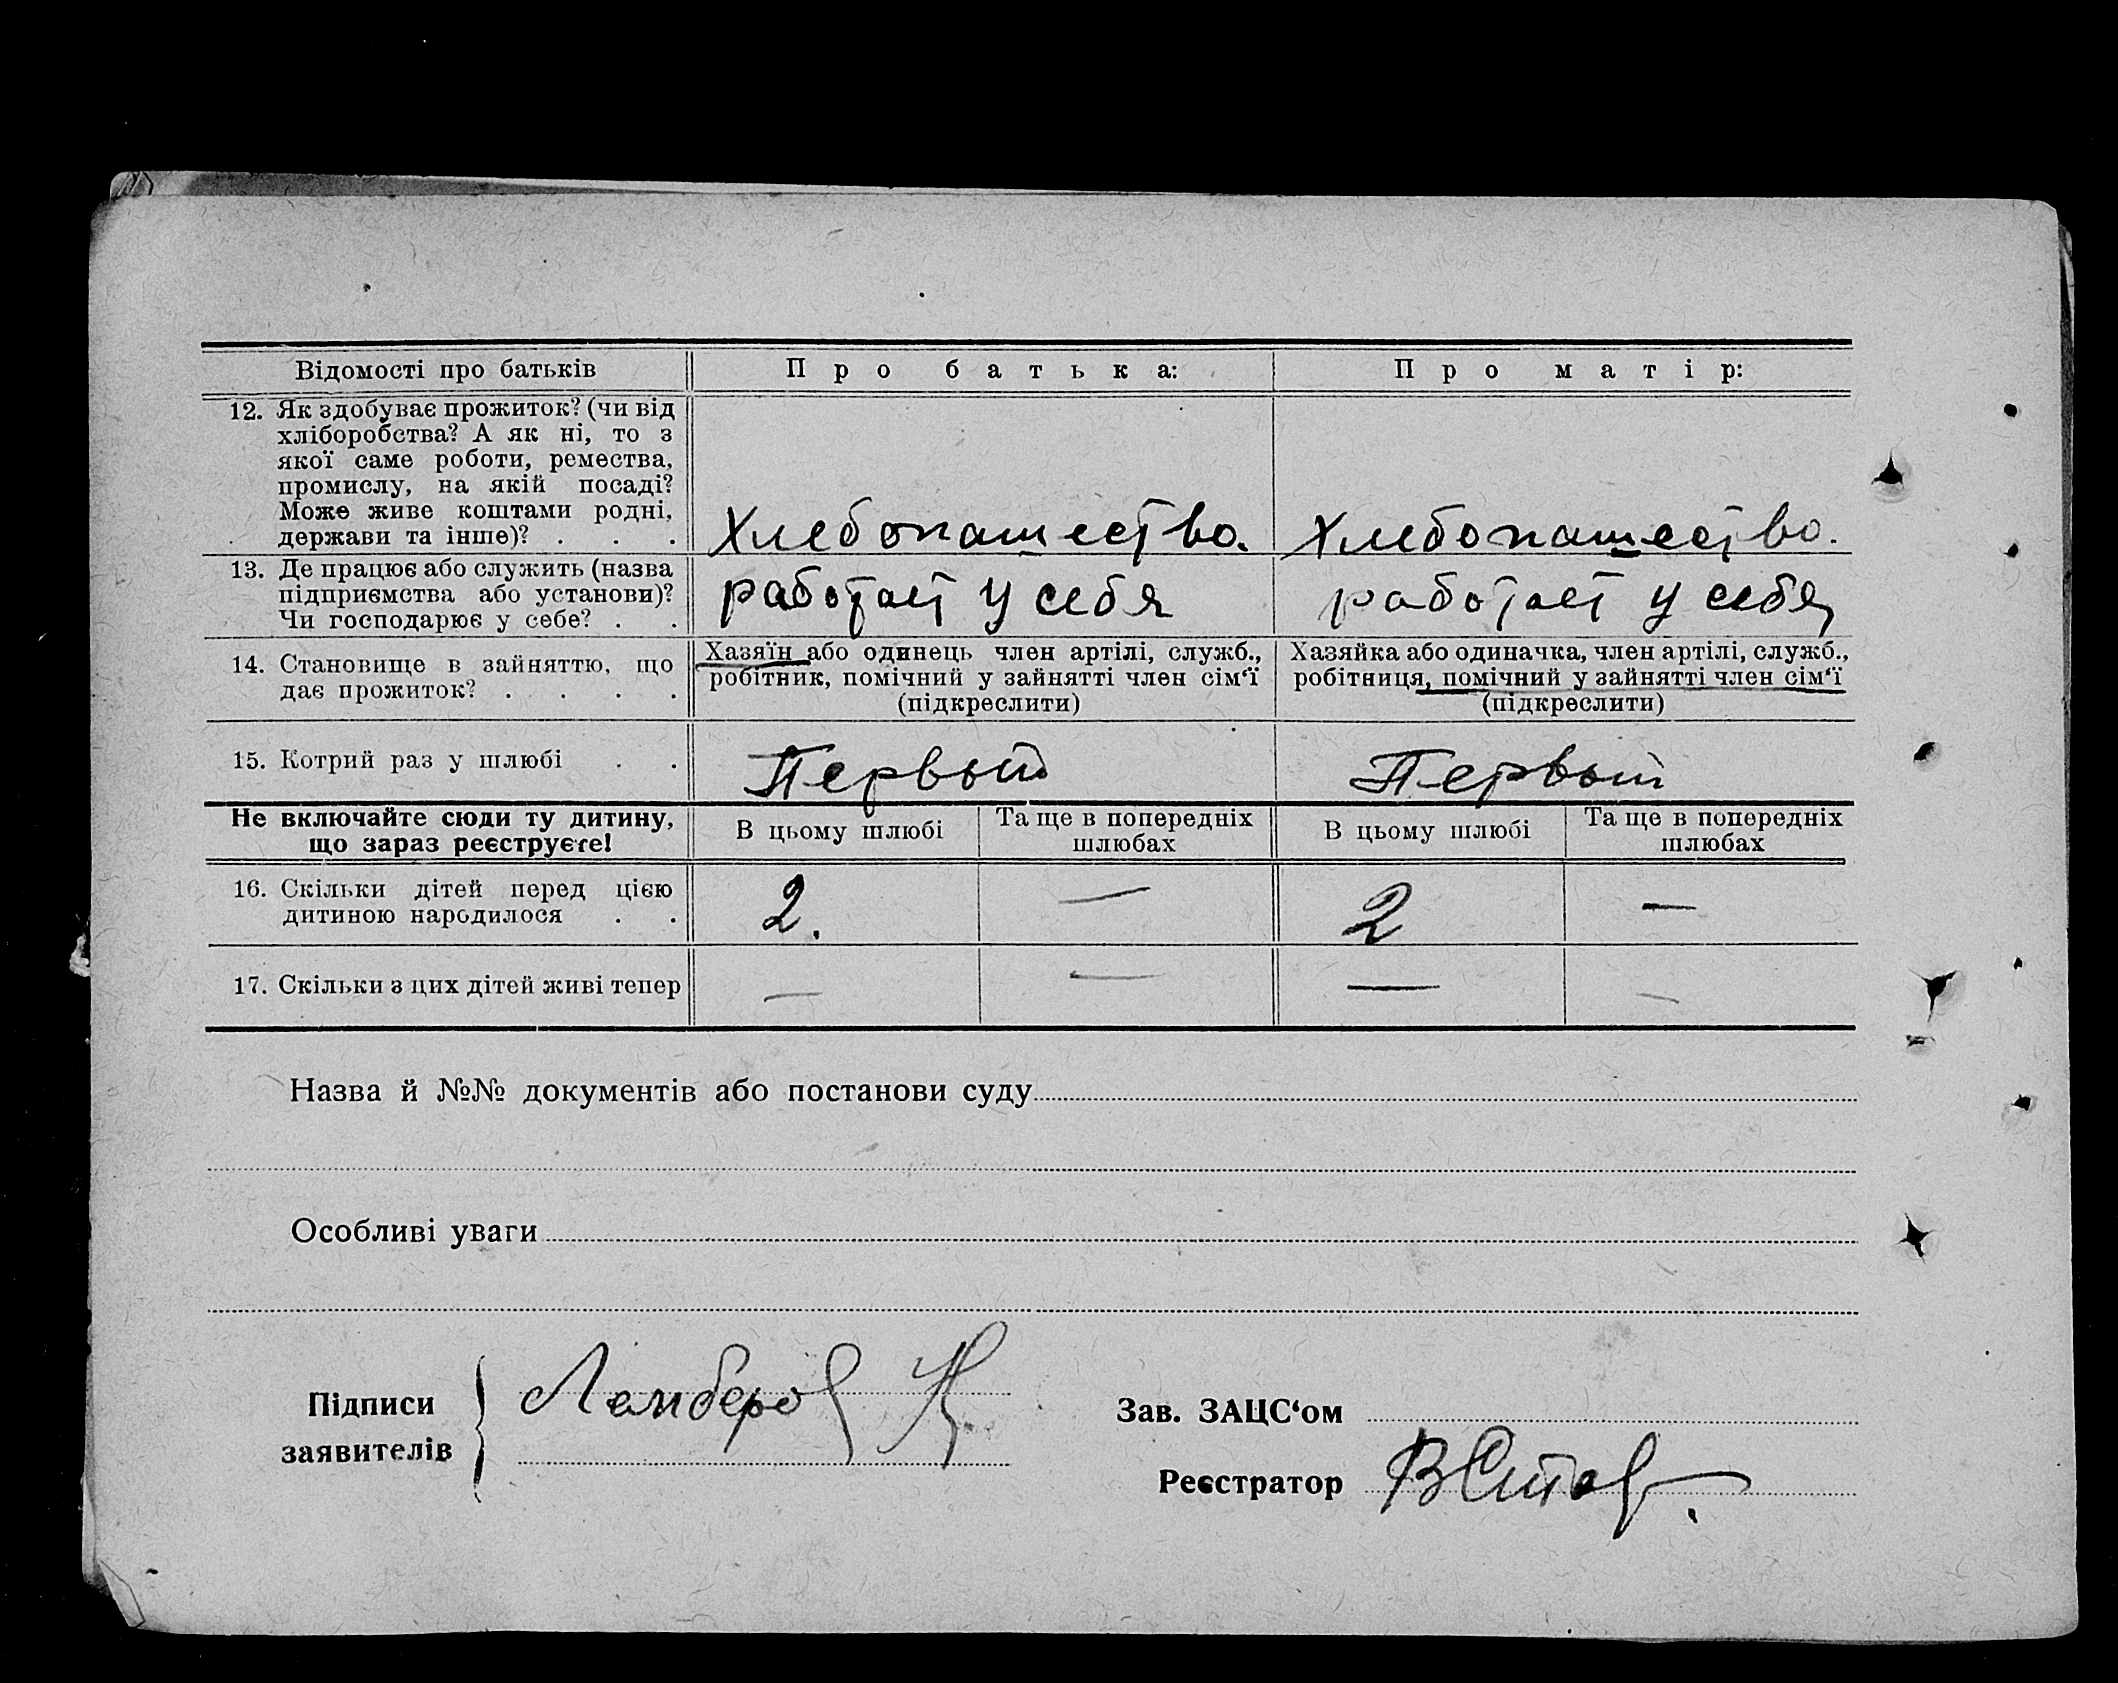 Відомості про батьків Про батька: Про матір:
12. Як здобуває прожиток? (чи від
хліборобства? А як ні, то з
якої саме роботи, ремества,
промислу, на якій посаді?
Може живе коштами родні,
держави та інше)? . . .
Хлебопашество. Хлебопашество.
13. Де працює або служить (назва
підприємства або установи)?
Чи господарює у себе? . .
работает у себя работает у себя
14. Становище в зайняттю, що
дає прожиток? . . . .
Хазяїн або одинець член артілі, служб.,
робітник, помічний у зайнятті член сім‘ї
(підкреслити)
Хазяйка або одиначка, член артілі, служб.,
робітниця, помічний у зайнятті член сім‘ї
(підкреслити)
15. Котрий раз у шлюбі . . Первый Первый
Не включайте сюди ту дитину,
що зараз реєструєте!
В цьому шлюбі
Та ще в попередніх
шлюбах
В цьому шлюбі
Та ще в попередніх
шлюбах
16. Скільки дітей перед цією
дитиною народилося . .
2. — 2 —
17. Скільки з цих дітей живі тепер — — — —
Назва й №№ документів або постанови суду
Особливі уваги
Підписи
заявителів
Зав. ЗАЦС‘ом
Реєстратор